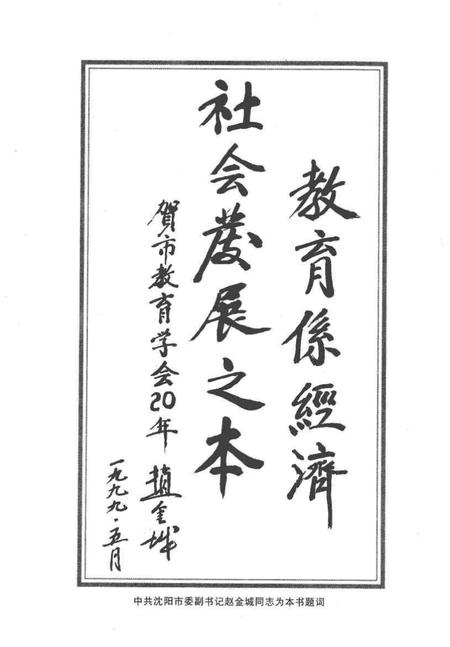 教育係經濟
社会發展之本
賀市教育学会20年 趙金城
一九九九·五月
中共沈阳市委副书记赵金城同志为本书题词